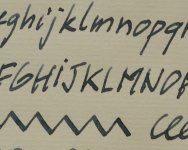 ghijklmnopqr
FGHIJKLMNOP